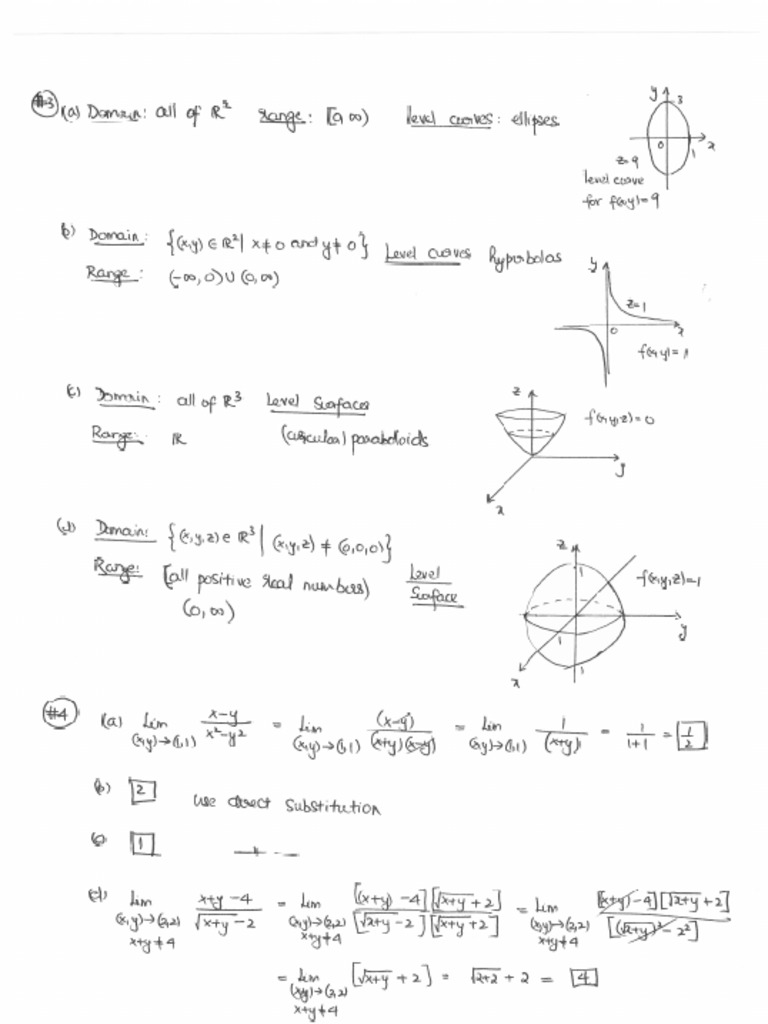 #3 (a) Domain: all of ℝ² range: [0,∞) level curves: ellipses
y 3 0 1 x
z=9
level curve
for f(x,y)=9
b) Domain: {(x,y) ∈ ℝ² | x≠0 and y≠0} Level curves hyperbolas
Range: (-∞,0)∪(0,∞)
y z=1 0 x
f(x,y)=1
(c) Domain: all of ℝ³ Level Surfaces
Range: ℝ (circular) paraboloids
z f(x,y,z)=0 y x
(d) Domain: {(x,y,z) ∈ ℝ³ | (x,y,z) ≠ (0,0,0)}
Range: [all positive real numbers) Level
(0,∞) Surface
z 1 f(x,y,z)=1 y 1 1 x
#4 (a) lim (x,y)→(1,1) (x-y)/(x²-y²) = lim (x,y)→(1,1) (x-y)/((x+y)(x-y)) = lim (x,y)→(1,1) 1/(x+y) = 1/(1+1) = 1/2
b) 2 use direct substitution
(c) 1
(d) lim (x,y)→(2,2) x+y≠4 (x+y-4)/(√(x+y)-2) = lim (x,y)→(2,2) x+y≠4 ([(x+y)-4][√(x+y)+2])/([√(x+y)-2][√(x+y)+2]) = lim (x,y)→(2,2) x+y≠4 ([(x+y)-4][√(x+y)+2])/[(√(x+y))²-2²]
= lim (x,y)→(2,2) x+y≠4 [√(x+y)+2] = √(2+2)+2 = 4